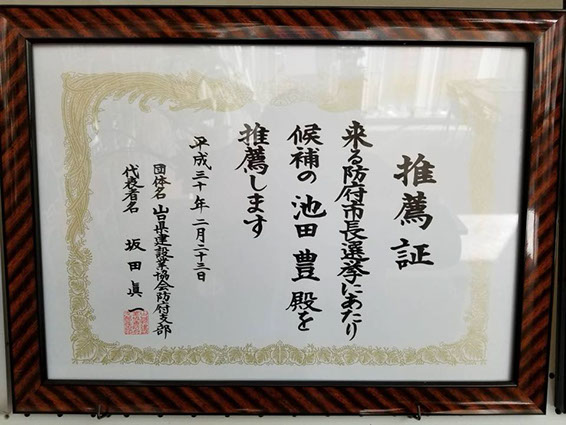 推薦証
来る防府市長選挙にあたり
候補の 池田 豊 殿を
推薦します
平成三十年 二月二十三日
団体名 山口県建設業協会防府支部
代表者名 坂田眞一